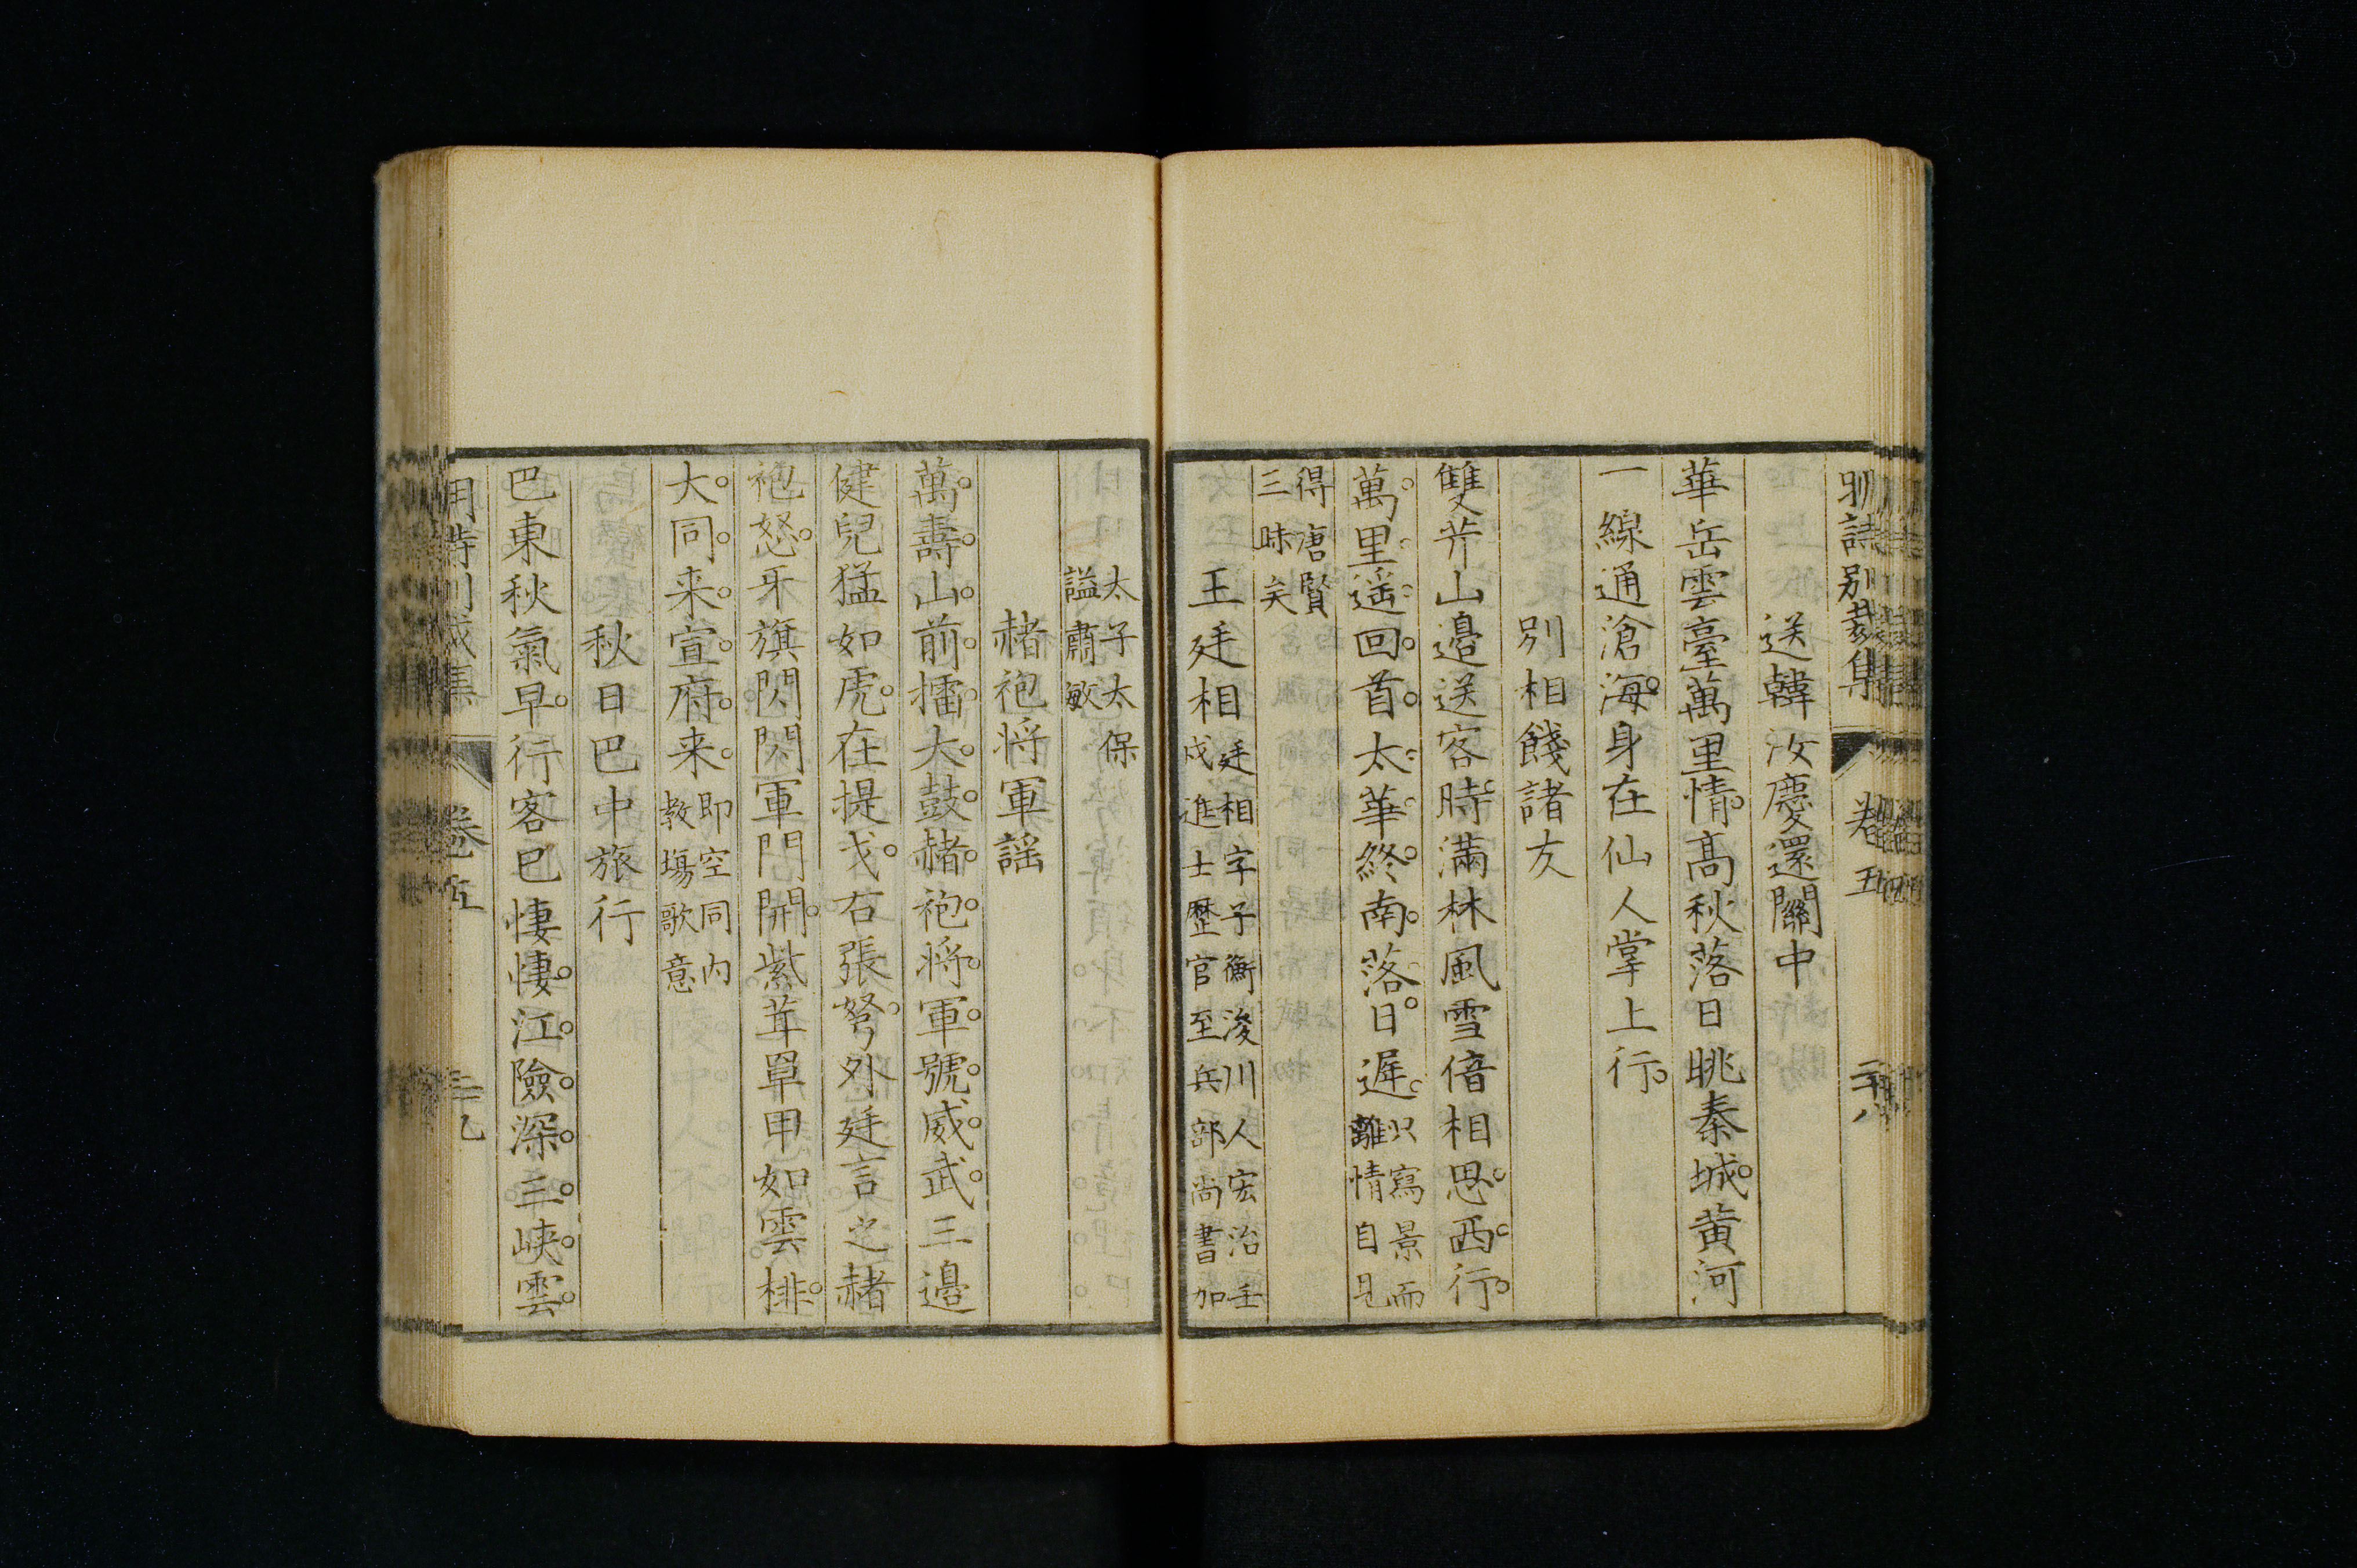 明詩別裁集 卷五 二十八
送韓汝慶還關中
華岳雲臺萬里情高秋落日眺秦城黃河
一線通滄海身在仙人掌上行
別相餞諸友
雙芹山邊送客時滿林風雪倍相思西行
萬里遥回首太華終南落日遲
只寫景而
離情自見
得唐賢
三昧矣
王廷相
廷相字子衡浚川人宏治壬
戌進士歷官至兵部尚書加
太子太保
謚肅敏
赭袍将軍謡
萬壽山前擂大鼓赭袍将軍號威武三邉
健兒猛如虎在提戈右張弩外廷言之赭
袍怒牙旗閃閃軍門開紫茸罩甲如雲排
大同来宣府来
即空同内
教場歌意
秋日巴中旅行
巴東秋氣早行客已悽悽江險深三峽雲
卷五